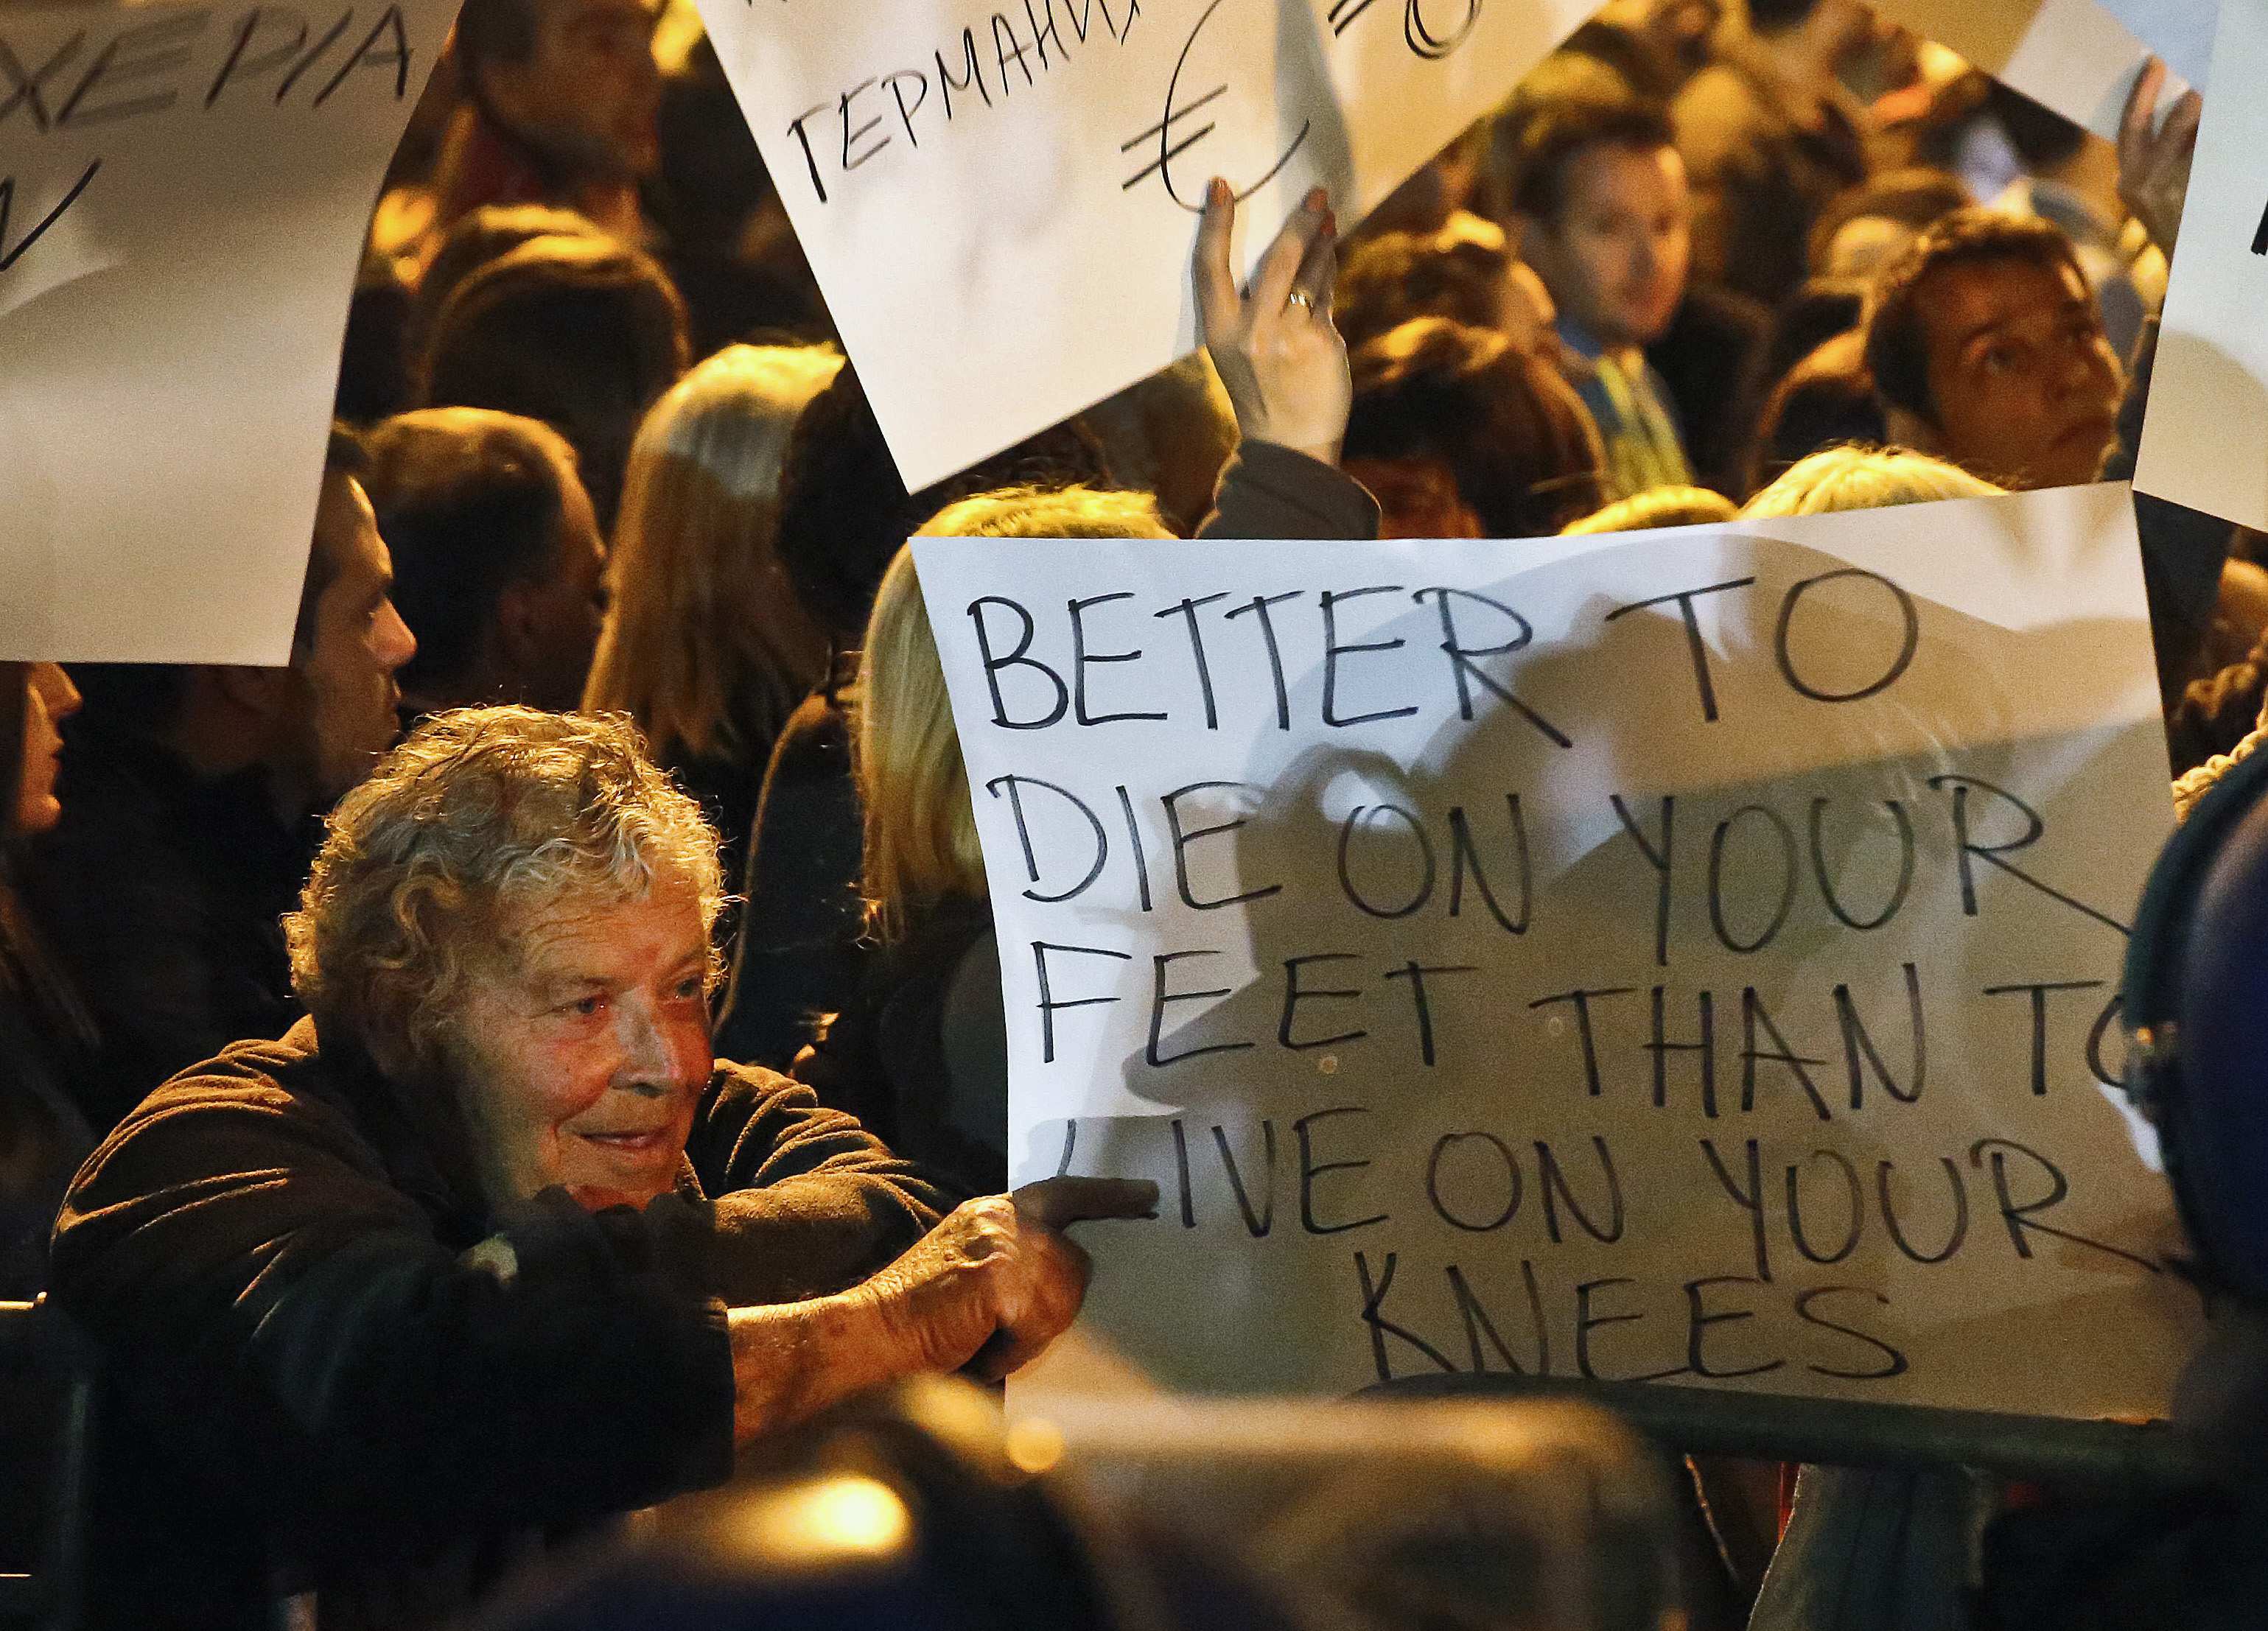 ΧΕΡΙΑ
ГЕРМАНИ
€ =0
BETTER TO
DIE ON YOUR
FEET THAN TO
LIVE ON YOUR
KNEES